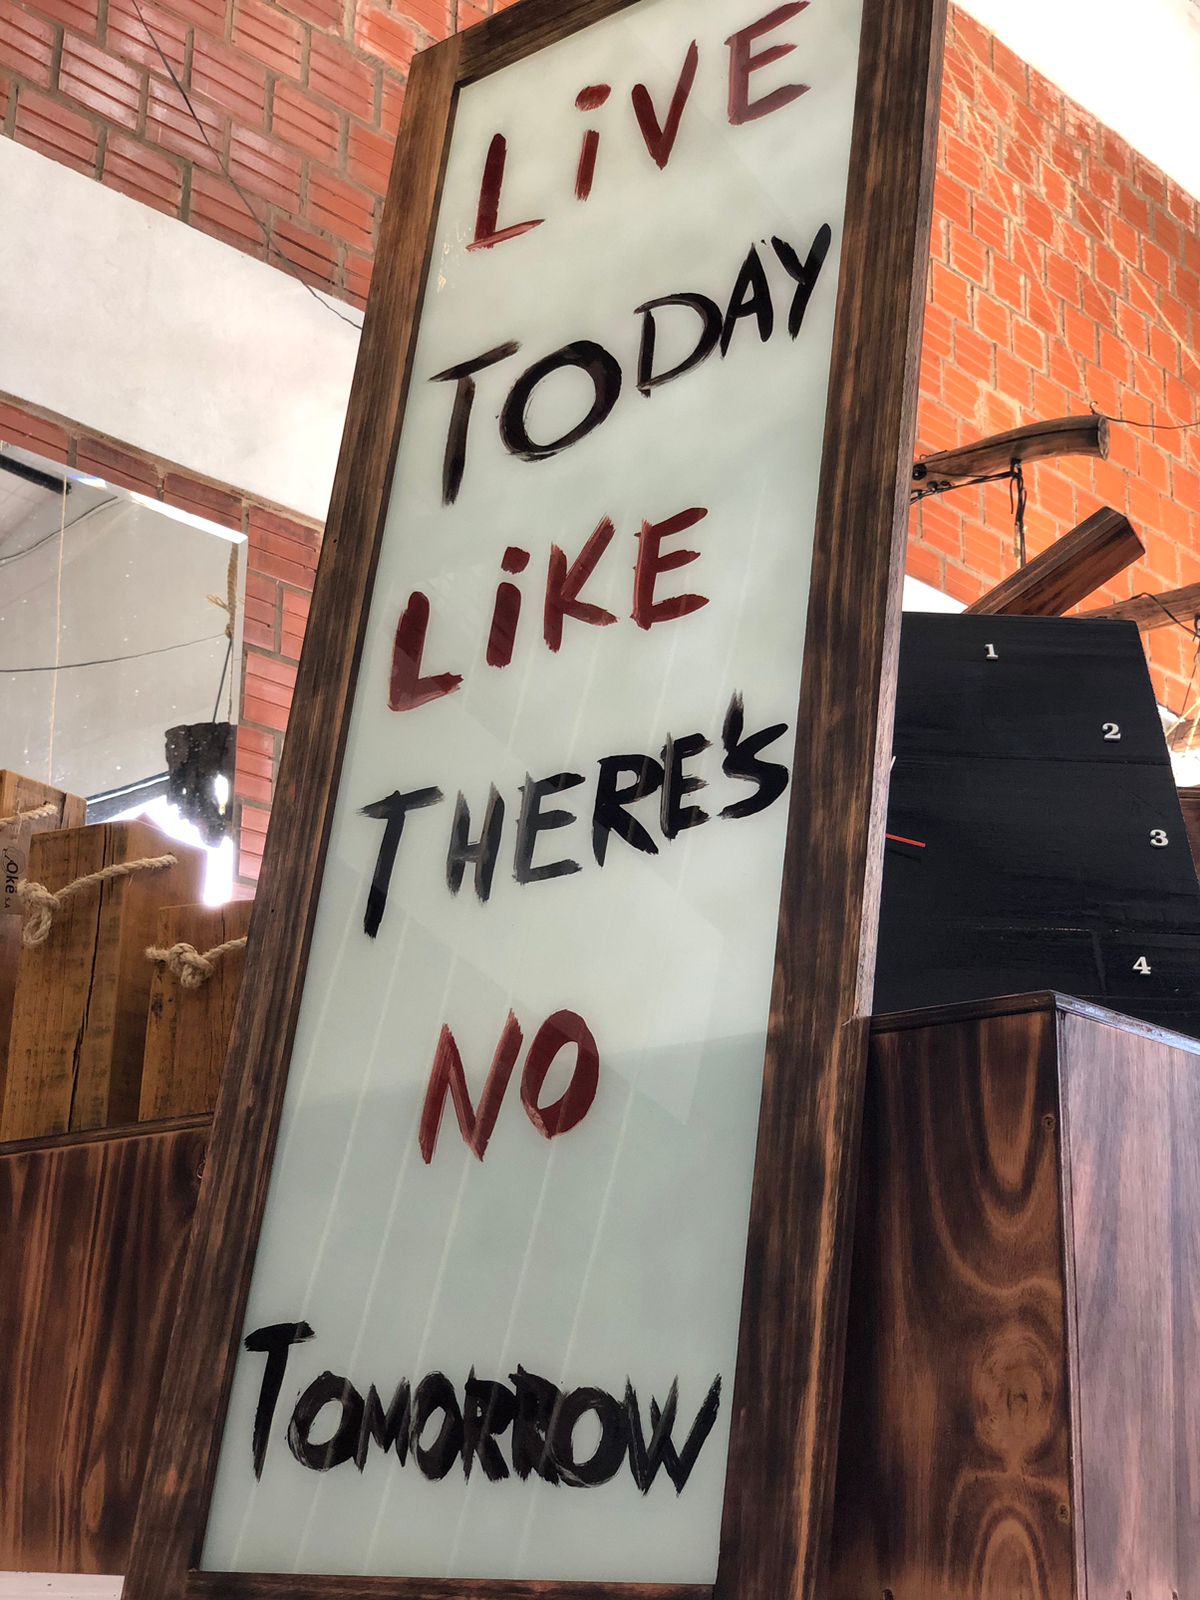 LiVE
TODAY
LiKE
THERE'S
NO
TOMORROW
1
2
3
4
Oké S.A